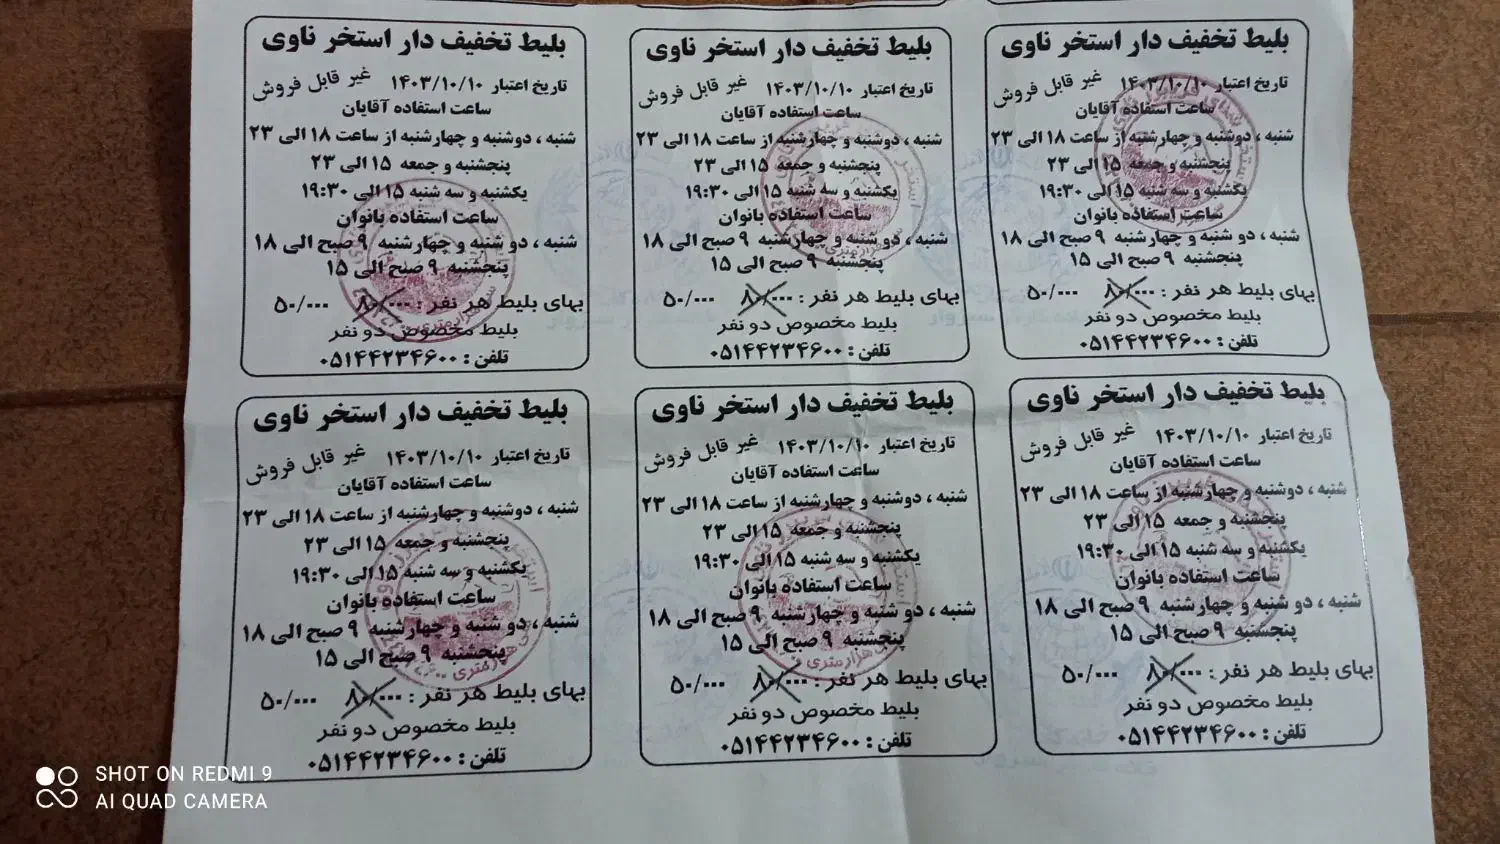 بلیط تخفیف دار استخر ناوی
تاریخ اعتبار ۱۴۰۳/۱۰/۱۰ غیر قابل فروش
ساعت استفاده آقایان
شنبه ، دوشنبه و چهارشنبه از ساعت ۱۸ الی ۲۳
پنجشنبه و جمعه ۱۵ الی ۲۳
یکشنبه و سه شنبه ۱۵ الی ۱۹:۳۰
ساعت استفاده بانوان
شنبه ، دو شنبه و چهارشنبه ۹ صبح الی ۱۸
پنجشنبه ۹ صبح الی ۱۵
بهای بلیط هر نفر : ۸۰/۰۰۰ ۵۰/۰۰۰
بلیط مخصوص دو نفر
تلفن : ۰۵۱۴۴۲۳۴۶۰۰
بلیط تخفیف دار استخر ناوی
تاریخ اعتبار ۱۴۰۳/۱۰/۱۰ غیر قابل فروش
ساعت استفاده آقایان
شنبه ، دوشنبه و چهارشنبه از ساعت ۱۸ الی ۲۳
پنجشنبه و جمعه ۱۵ الی ۲۳
یکشنبه و سه شنبه ۱۵ الی ۱۹:۳۰
ساعت استفاده بانوان
شنبه ، دو شنبه و چهارشنبه ۹ صبح الی ۱۸
پنجشنبه ۹ صبح الی ۱۵
بهای بلیط هر نفر : ۸۰/۰۰۰ ۵۰/۰۰۰
بلیط مخصوص دو نفر
تلفن : ۰۵۱۴۴۲۳۴۶۰۰
بلیط تخفیف دار استخر ناوی
تاریخ اعتبار ۱۴۰۳/۱۰/۱۰ غیر قابل فروش
ساعت استفاده آقایان
شنبه ، دوشنبه و چهارشنبه از ساعت ۱۸ الی ۲۳
پنجشنبه و جمعه ۱۵ الی ۲۳
یکشنبه و سه شنبه ۱۵ الی ۱۹:۳۰
ساعت استفاده بانوان
شنبه ، دو شنبه و چهارشنبه ۹ صبح الی ۱۸
پنجشنبه ۹ صبح الی ۱۵
بهای بلیط هر نفر : ۸۰/۰۰۰ ۵۰/۰۰۰
بلیط مخصوص دو نفر
تلفن : ۰۵۱۴۴۲۳۴۶۰۰
بلیط تخفیف دار استخر ناوی
تاریخ اعتبار ۱۴۰۳/۱۰/۱۰ غیر قابل فروش
ساعت استفاده آقایان
شنبه ، دوشنبه و چهارشنبه از ساعت ۱۸ الی ۲۳
پنجشنبه و جمعه ۱۵ الی ۲۳
یکشنبه و سه شنبه ۱۵ الی ۱۹:۳۰
ساعت استفاده بانوان
شنبه ، دو شنبه و چهارشنبه ۹ صبح الی ۱۸
پنجشنبه ۹ صبح الی ۱۵
بهای بلیط هر نفر : ۸۰/۰۰۰ ۵۰/۰۰۰
بلیط مخصوص دو نفر
تلفن : ۰۵۱۴۴۲۳۴۶۰۰
بلیط تخفیف دار استخر ناوی
تاریخ اعتبار ۱۴۰۳/۱۰/۱۰ غیر قابل فروش
ساعت استفاده آقایان
شنبه ، دوشنبه و چهارشنبه از ساعت ۱۸ الی ۲۳
پنجشنبه و جمعه ۱۵ الی ۲۳
یکشنبه و سه شنبه ۱۵ الی ۱۹:۳۰
ساعت استفاده بانوان
شنبه ، دو شنبه و چهارشنبه ۹ صبح الی ۱۸
پنجشنبه ۹ صبح الی ۱۵
بهای بلیط هر نفر : ۸۰/۰۰۰ ۵۰/۰۰۰
بلیط مخصوص دو نفر
تلفن : ۰۵۱۴۴۲۳۴۶۰۰
بلیط تخفیف دار استخر ناوی
تاریخ اعتبار ۱۴۰۳/۱۰/۱۰ غیر قابل فروش
ساعت استفاده آقایان
شنبه ، دوشنبه و چهارشنبه از ساعت ۱۸ الی ۲۳
پنجشنبه و جمعه ۱۵ الی ۲۳
یکشنبه و سه شنبه ۱۵ الی ۱۹:۳۰
ساعت استفاده بانوان
شنبه ، دو شنبه و چهارشنبه ۹ صبح الی ۱۸
پنجشنبه ۹ صبح الی ۱۵
بهای بلیط هر نفر : ۸۰/۰۰۰ ۵۰/۰۰۰
بلیط مخصوص دو نفر
تلفن : ۰۵۱۴۴۲۳۴۶۰۰
SHOT ON REDMI 9
AI QUAD CAMERA